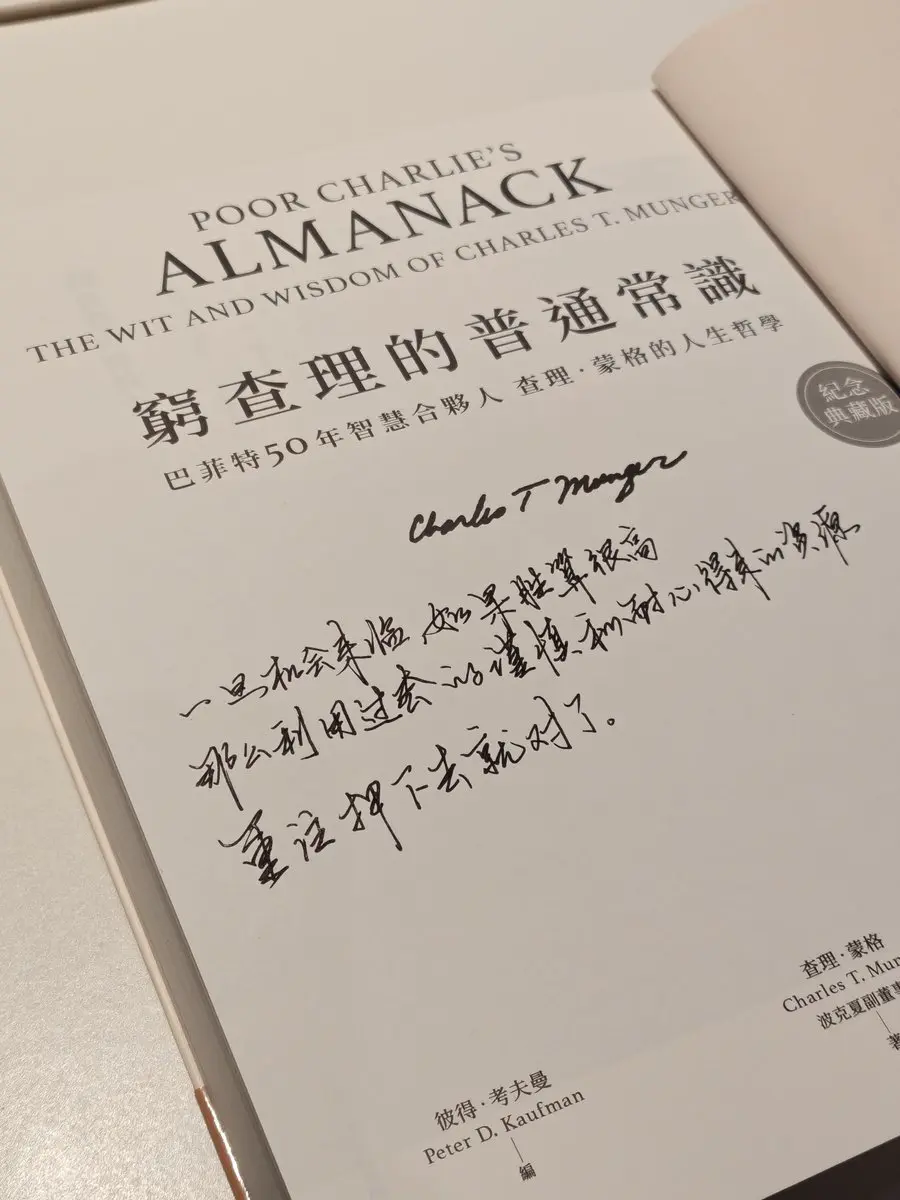 POOR CHARLIE'S
ALMANACK
THE WIT AND WISDOM OF CHARLES T. MUNGER
窮查理的普通常識
巴菲特50年智慧合夥人 查理·蒙格的人生哲學
紀念
典藏版
Charles T Munger
一旦机会来临,如果胜算很高
那么利用过去的谨慎和耐心得来的资源
重注押下去就对了。
查理·蒙格
Charles T. Mun
波克夏副董事
著
彼得·考夫曼
Peter D. Kaufman
編